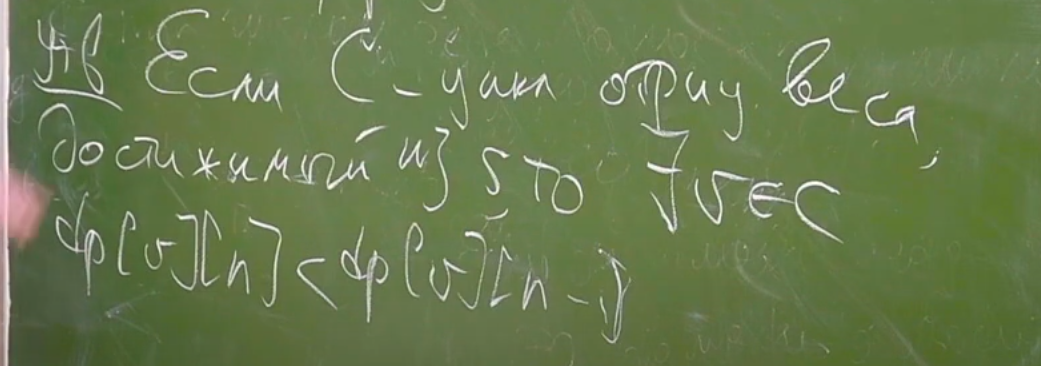 Утв Если C - цикл отриц. веса,
достижимый из s то ∃ v ∈ C
dp[v][n] < dp[v][n-1]